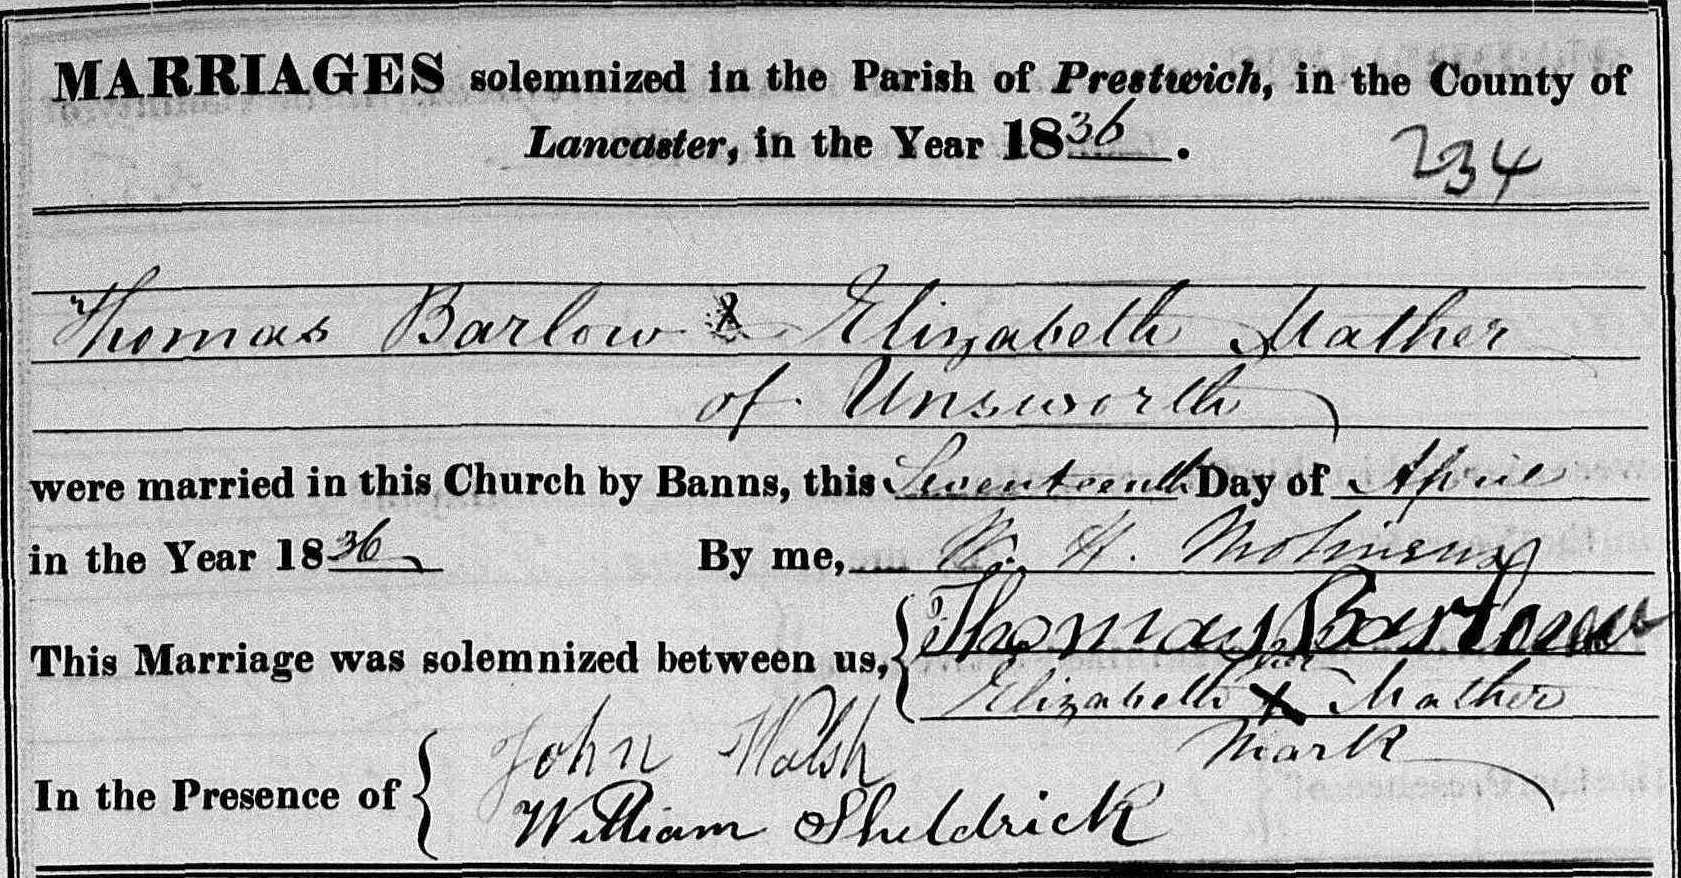 MARRIAGES solemnized in the Parish of Prestwich, in the County of
Lancaster, in the Year 1836.
234
Thomas Barlow & Elizabeth Mather
of Unsworth
were married in this Church by Banns, this Seventeenth Day of April
in the Year 1836 By me, W. H. Molineux
This Marriage was solemnized between us, Thomas Barlow
Elizabeth her X Mather
mark
In the Presence of John Walsh
William Sheldrick